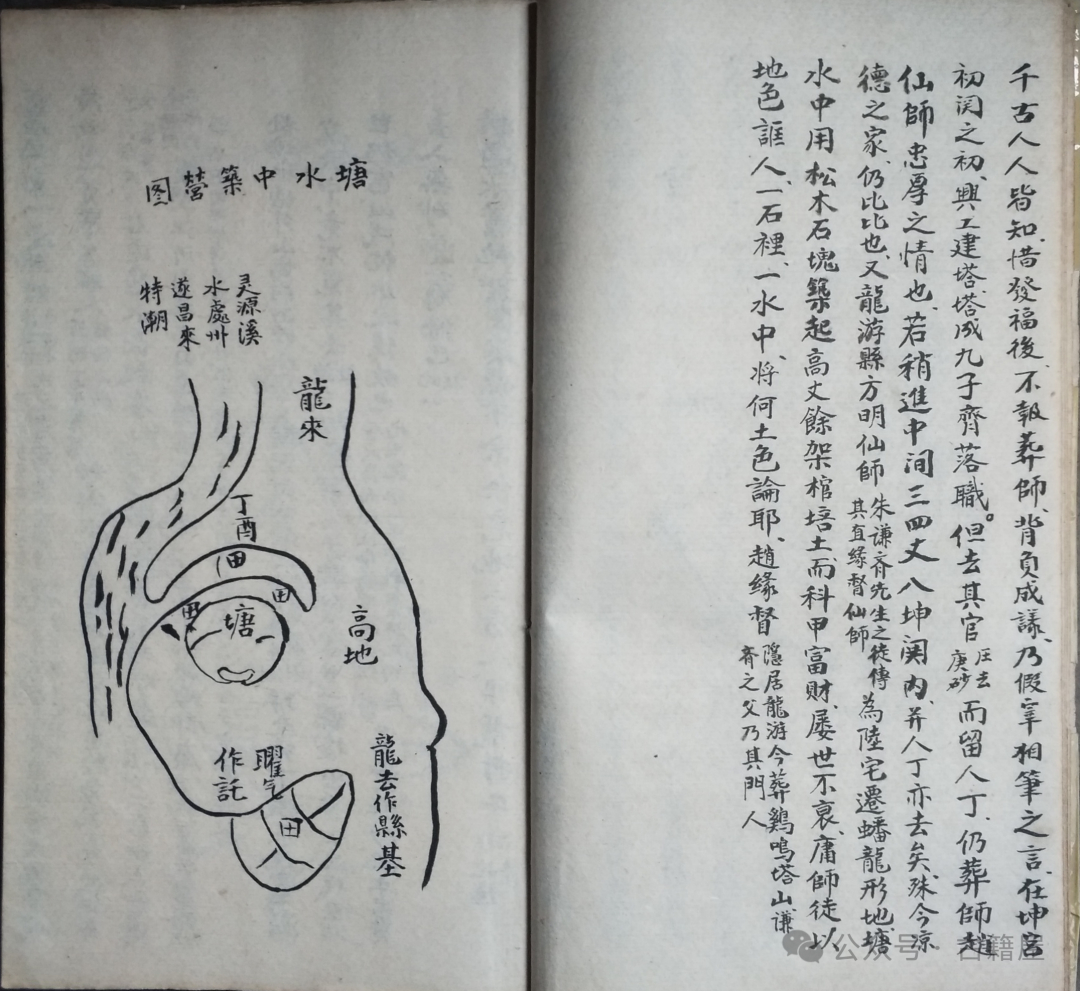 千古人人皆知、惜發福後、不報葬師、背負成議、乃假宰相筆之言、在坤宮
初関之初、興工建塔、塔成九子齊落職。但去其官
庚砂
而留人丁、仍葬師趙
仙師忠厚之情也、若稍進中间三四丈八坤関内、并人丁亦去矣、殊今凉
德之家、仍比比也、又龍游縣方明仙師
朱謙齊先生之徒傳
其直緣督仙師
為陸宅遷蟠龍形地、塘
水中用松木石塊築起高丈餘架棺培土而科甲富財、屡世不衰、庸師徒以
地色誆人、一石裡、一水中、将何土色論耶、趙緣督
隱居龍游今葬鷄鳴塔山謙
齊之父乃其門人
塘水中築營图
灵源溪
水處州
遂昌來
特潮
龍來
丁酉
田
田
田
塘
高地
曜气
作託
田
龍去作縣基
公众号·古籍屋